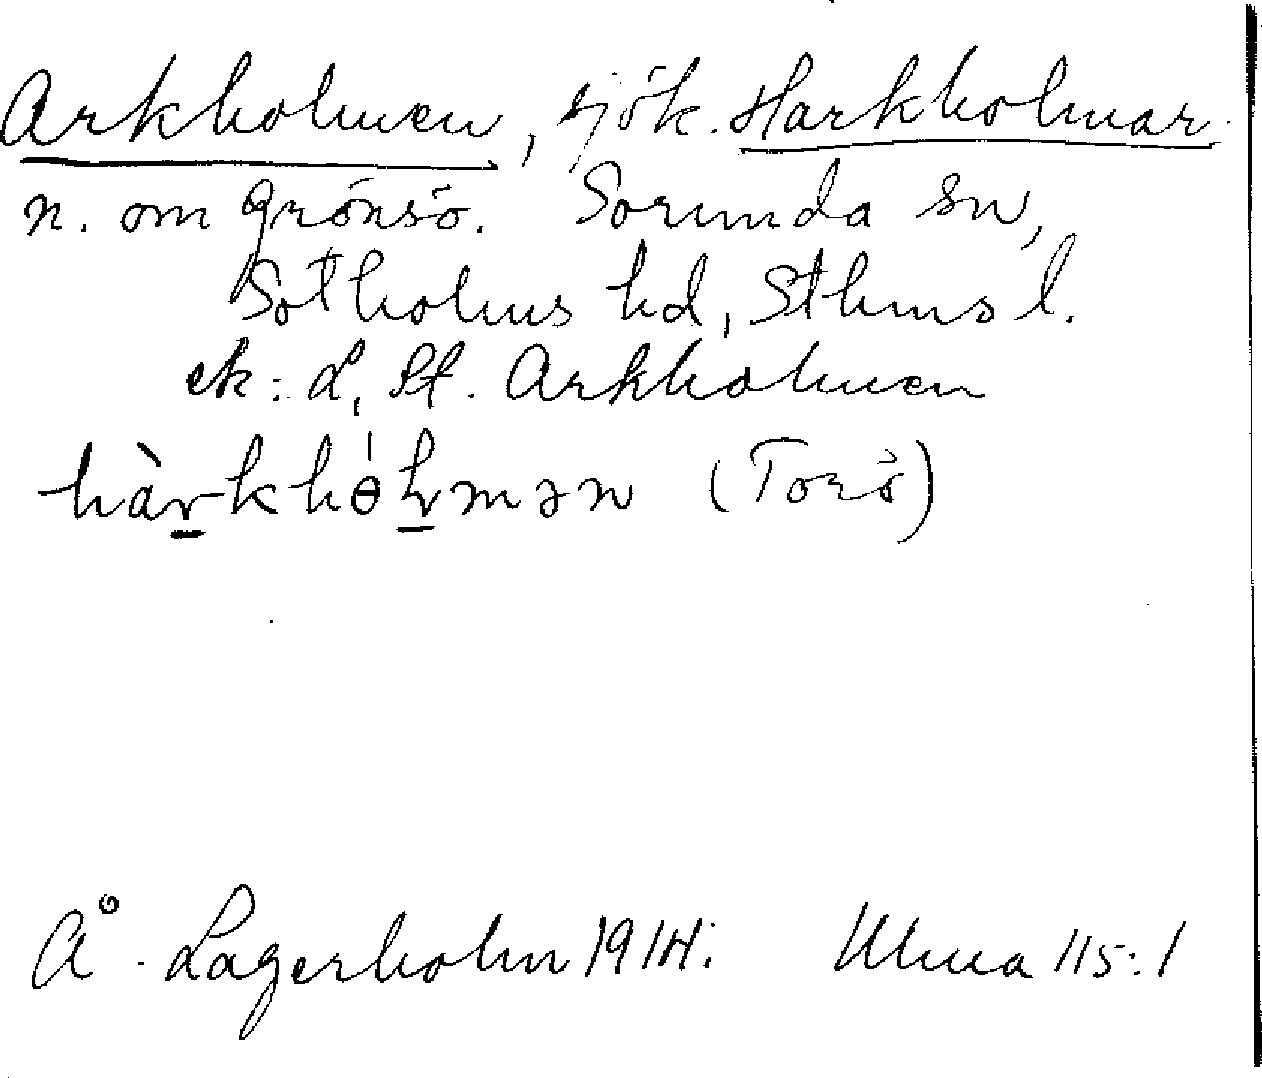 Arkholmen, sjök. Harkholmar.
n. om Grönsö. Sorunda sn,
Sotholms hd, Sthms l.
ek: L, St. Arkholmen
hàrkhɵ́lmən (Torö)
Å. Lagerholm 1914. Ulma 115:1